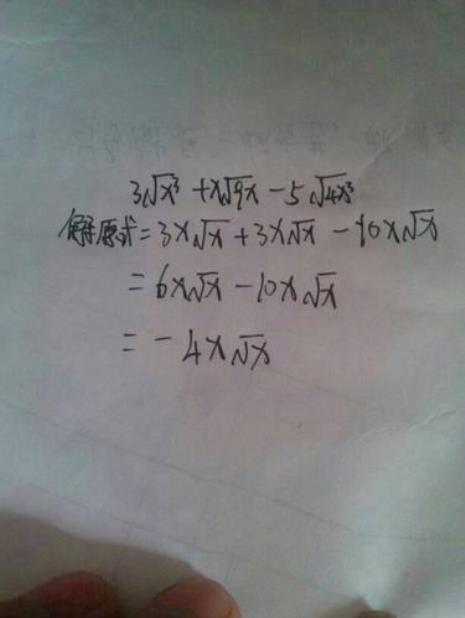 3√x³ + x√9x - 5√4x³
解:原式=3x√x + 3x√x - 10x√x
= 6x√x - 10x√x
= - 4x√x